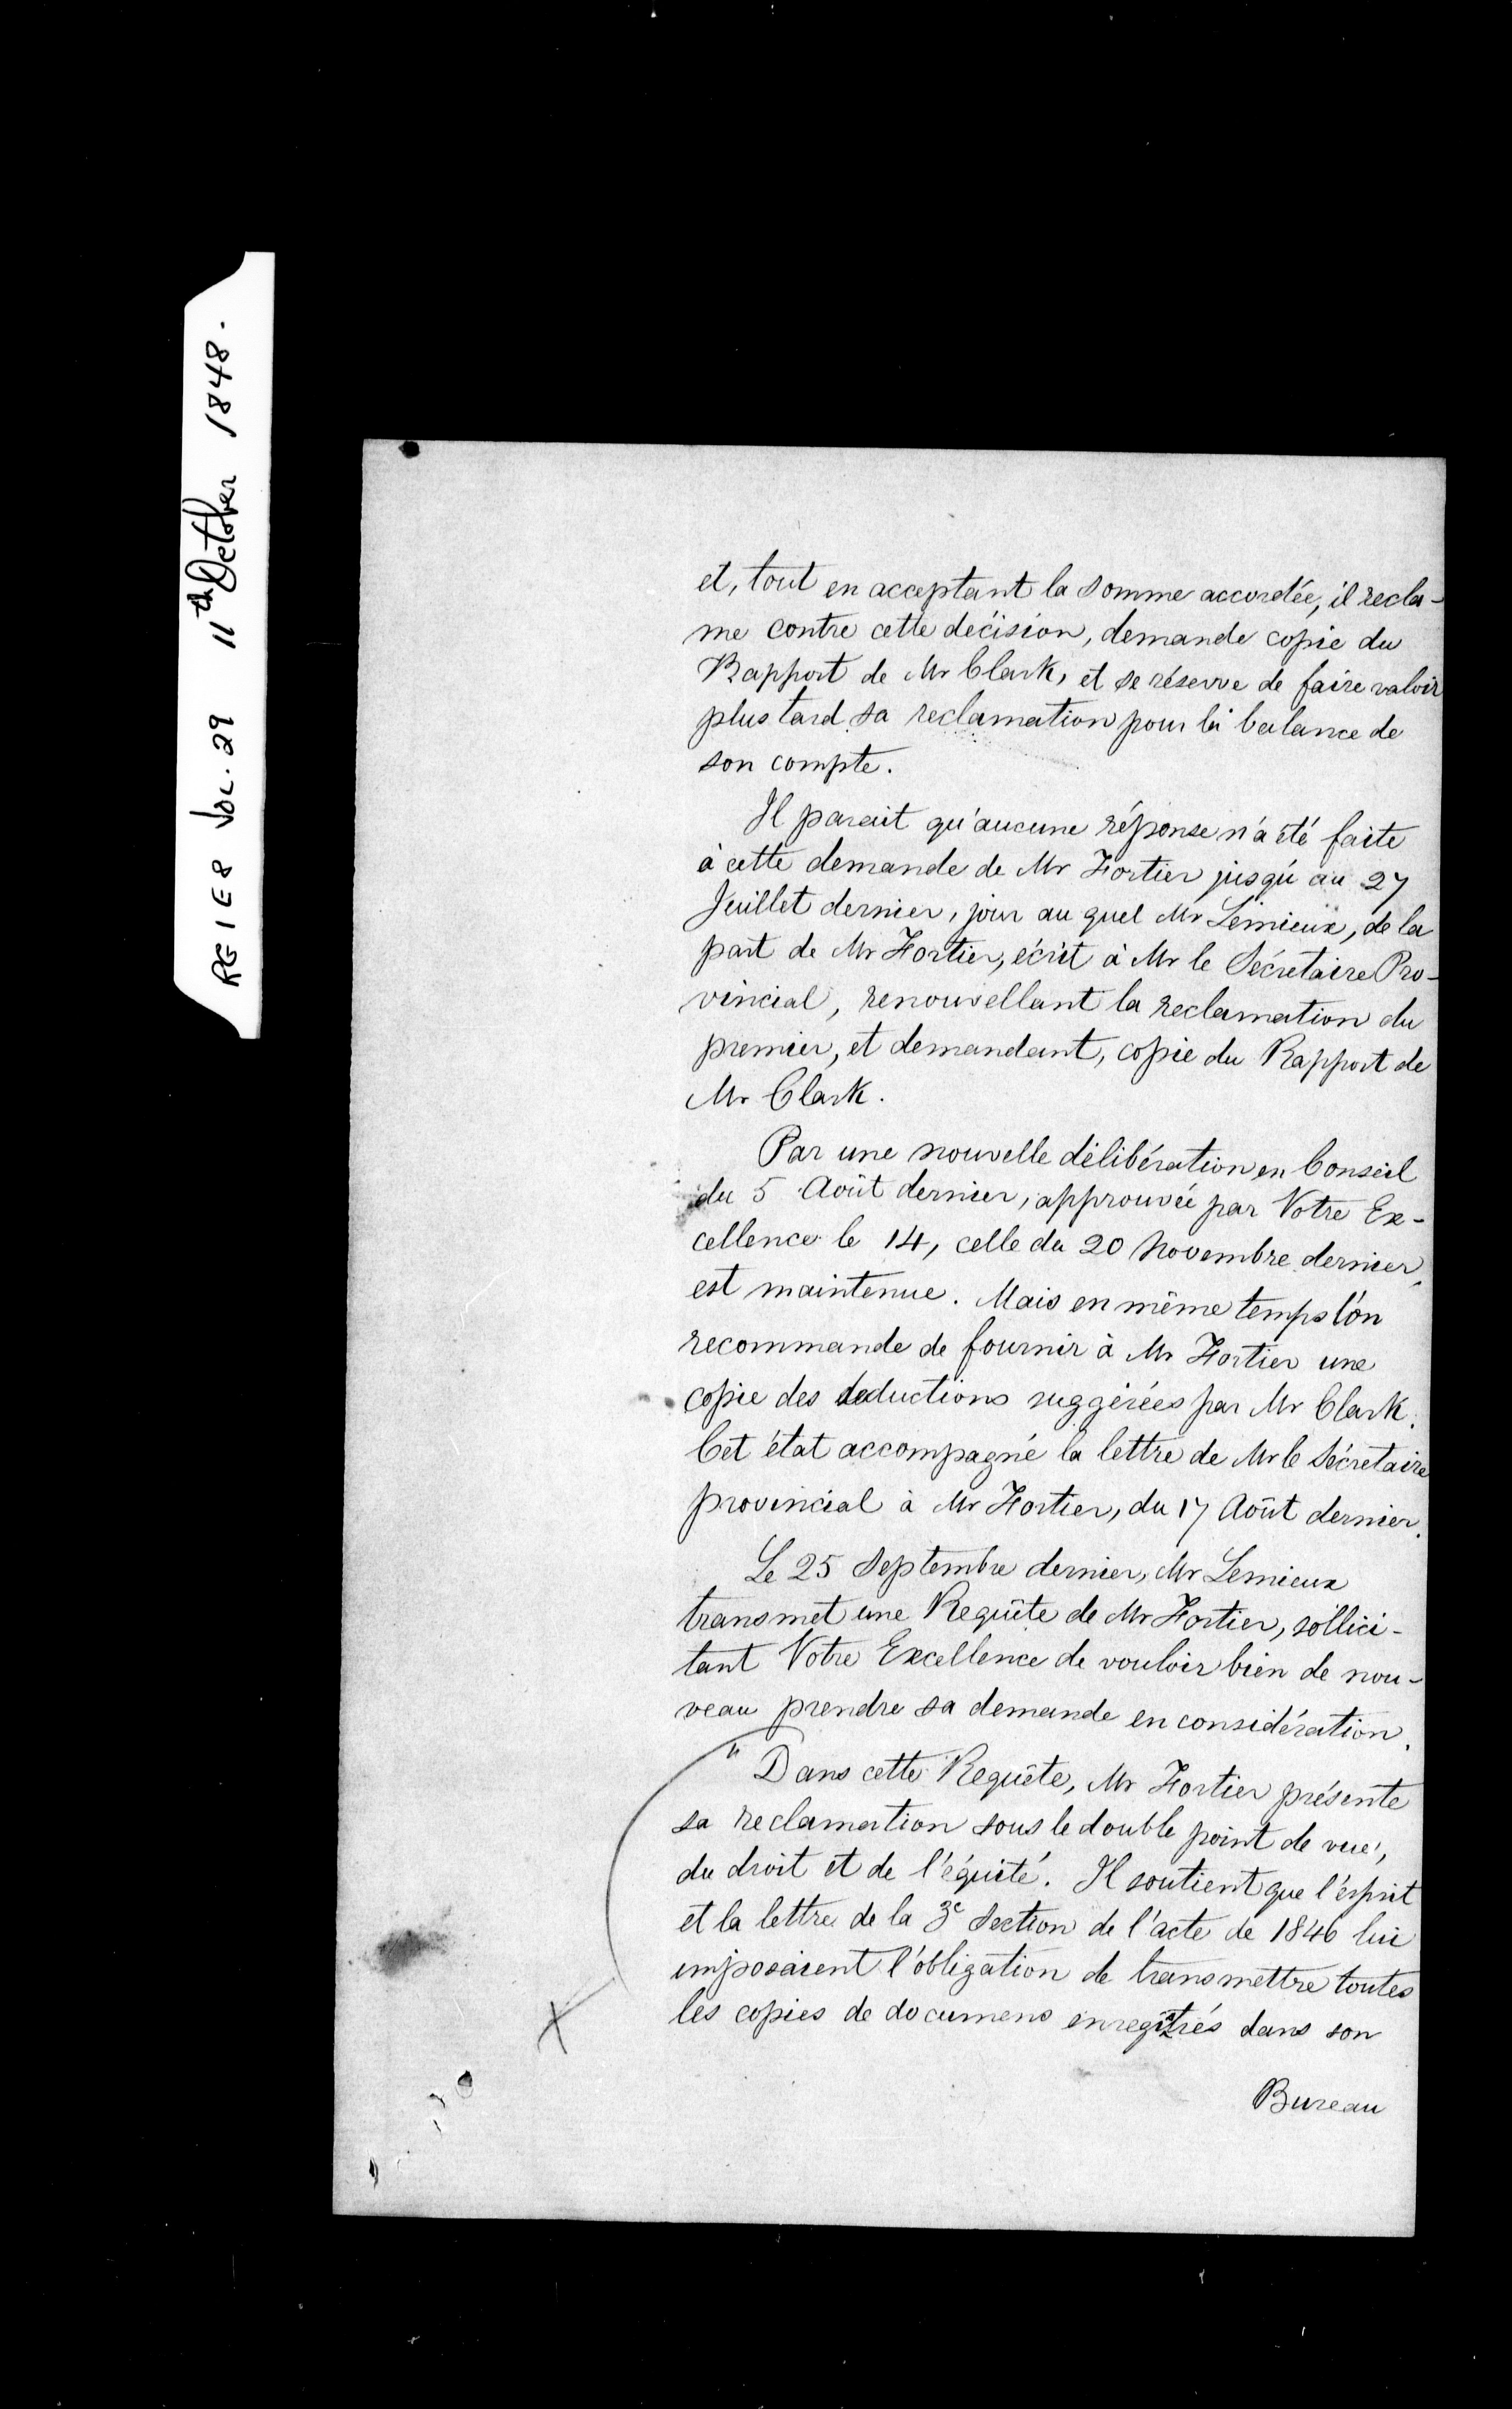 RG 1 E 8 Vol. 29 11th October 1848.
et, tout en acceptant la somme accordée, il recla-
me contre cette decision, demande copie du
Rapport de Mr Clark, et se réserve de faire valoir
plus tard sa reclamation pour la balance de
son compte.
Il parait qu'aucune réponse n'a été faite
à cette demande de Mr Fortier jusqu'au 27
Juillet dernier, jour au quel Mr Lemieux, de la
part de Mr Fortier, écrit à Mr le Sécretaire Pro-
vincial, renouvellant la reclamation du
premier, et demandant, copie du Rapport de
Mr Clark.
Par une nouvelle délibération en Conseil
du 5 Août dernier, approuvée par Votre Ex-
cellence le 14, celle du 20 Novembre dernier,
est maintenue. Mais en même temps l'on
recommande de fournir à Mr Fortier une
copie des deductions suggérées par Mr Clark.
Cet état accompagné la lettre de Mr le Sécretaire
provincial à Mr Fortier, du 17 Août dernier.
Le 25 Septembre dernier, Mr Lemieux
transmet une Requête de Mr Fortier, sollici-
tant Votre Excellence de vouloir bien de nou-
veau prendre sa demande en considération.
" Dans cette Requête, Mr Fortier présente
sa reclamation sous le double point de vue,
du droit et de l'équité. Il soutient que l'esprit
et la lettre de la 3e Section de l'acte de 1846 lui
imposaient l'obligation de transmettre toutes
les copies de documens enregistrés dans son
X
Bureau